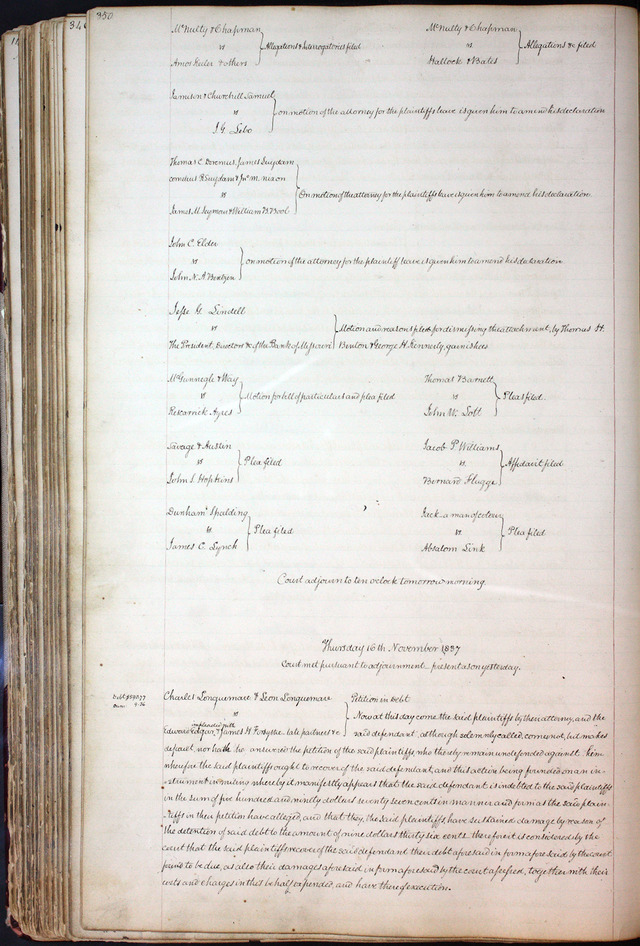 350
346
11
McNulty & Chapman
vs
Amos Ruler & others
Allegations & Interrogatories filed
McNulty & Chapman
vs
Hallock & Bates
Allegations &c filed
Jamison & Churchill Samuel
vs
J G. Lebo
on motion of the attorney for the plaintiffs leave is given him to amend his declaration
Thomas C. Doremus, James Suydam
Cornelius R Suydam & Jno M. Nixon
vs
James M. Seymour & William B. Bool
On motion of the attorney for the plaintiffs leave is given him to amend his declaration.
John C. Elder
vs
John N. A
on motion of the attorney for the plaintiff leave is given him to amend his declaration
Jesse G. Lindell
vs
The President, Directors &c of the Bank of Missouri
Motion and reasons filed for dismissing the attachment, by Thomas H.
Benton & George H. Kennerly, garnishees
McGunnegle & Way
vs
Rescarrick Ayres
Motion for bill of particulars and plea filed
Thomas Barnett
vs
John W.
Pleas filed.
Savage & Austin
vs
John S Hopkins
Plea filed
Jacob P. Williams
vs.
Bernard Flugge
Affidavit filed
Dunham Spalding
vs
James C. Lynch
Plea filed
Jack a man of colour
vs.
Absalom Link
Plea filed
Court adjourn to ten oclock tomorrow morning.
Thursday 16th November 1837
Court met pursuant to adjournment present as on yesterday.
Debt $590.77
Dam 9.36
Charles Longuemare & Leon Longuemare
vs
impleaded with
Edward Edgar, & James H. Forsythe late partners &c
Petition in Debt
Now at this day come the said plaintiffs by their attorney, and the
said defendant, although solemnly called, comes not, but makes
default, nor hath he answered the petition of the said plaintiffs who thereby remain undefended against him
wherefore the said plaintiffs ought to recover of the said defendant, and this action being founded on an in-
strument in writing whereby it manifestly appears that the said defendant is indebted to the said plaintiffs
in the sum of five hundred and ninety dollars seventy seven cents in manner and form as the said plain-
tiffs in their petition have alleged, and that they, the said plaintiffs, have sustained damage by reason of
the detention of said debt to the amount of nine dollars thirty six cents. therefore it is considered by the
court that the said plaintiffs recover of the said defendant their debt aforesaid in form aforesaid by the court
found to be due, as also their damages aforesaid in form aforesaid by the court assessed, together with their
costs and charges in this behalf expended, and have thereof execution.